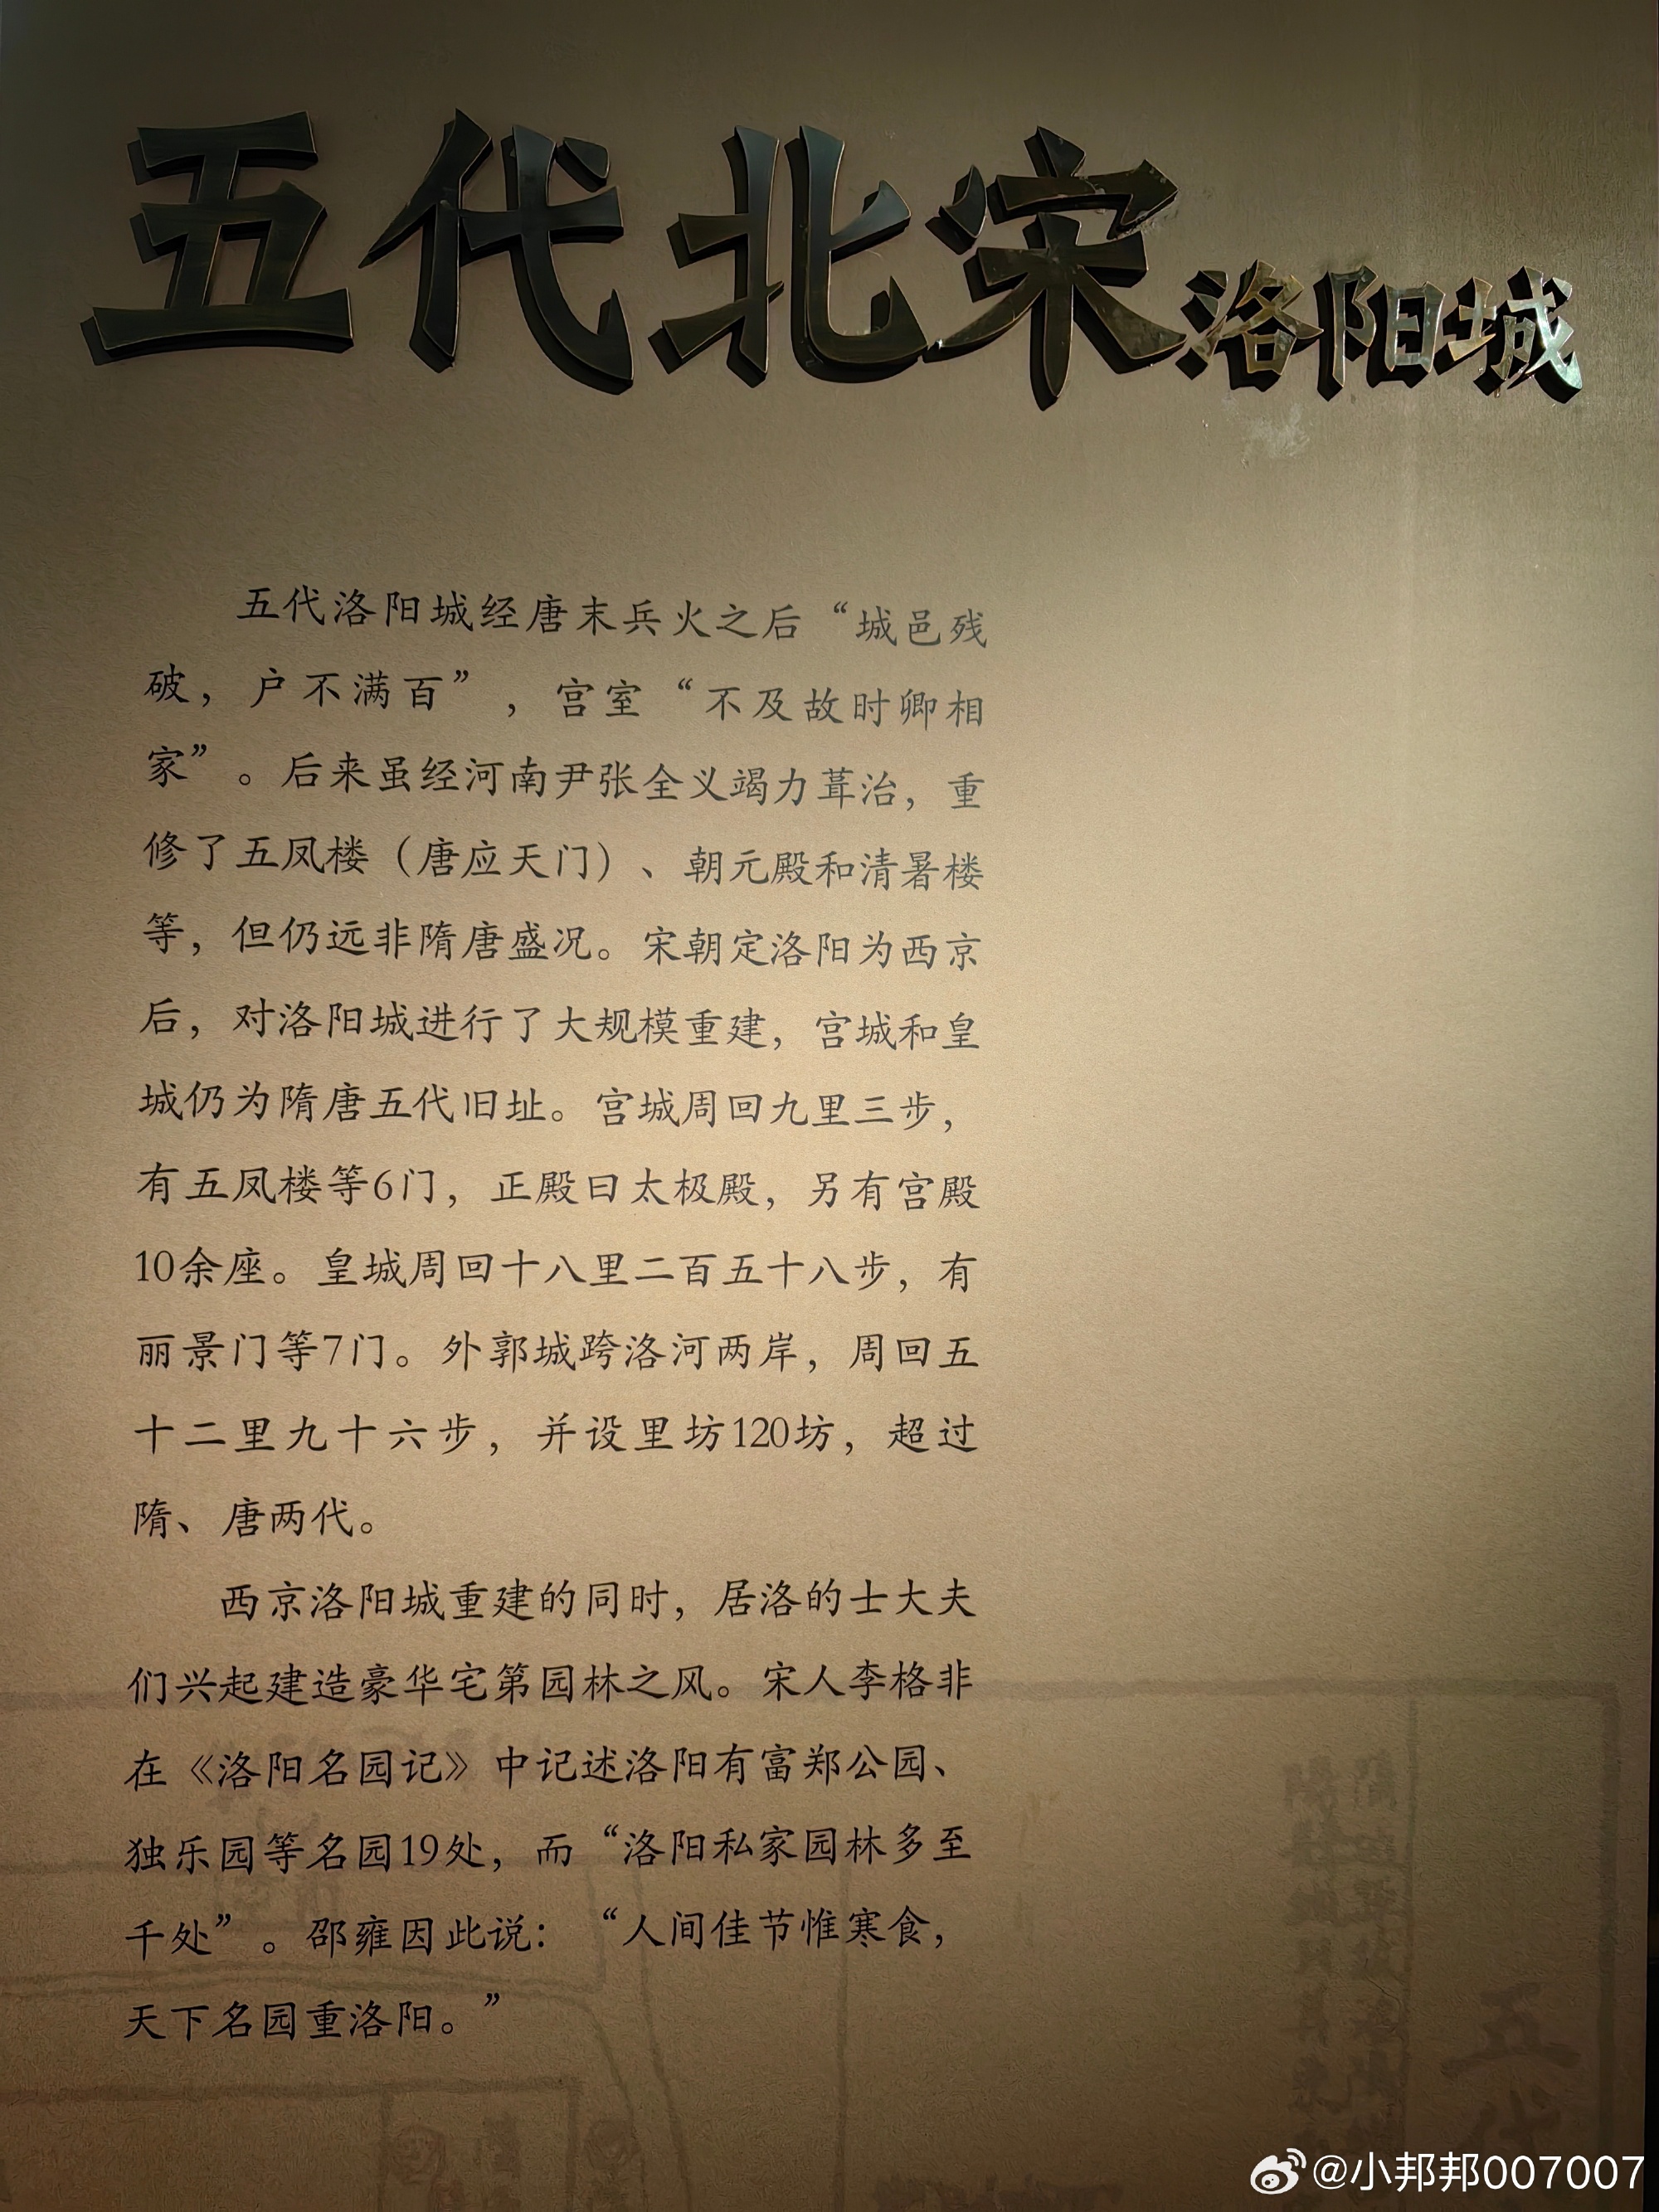 五代北宋洛阳城
五代洛阳城经唐末兵火之后“城邑残
破，户不满百”，宫室“不及故时卿相
家”。后来虽经河南尹张全义竭力葺治，重
修了五凤楼（唐应天门）、朝元殿和清暑楼
等，但仍远非隋唐盛况。宋朝定洛阳为西京
后，对洛阳城进行了大规模重建，宫城和皇
城仍为隋唐五代旧址。宫城周回九里三步，
有五凤楼等6门，正殿曰太极殿，另有宫殿
10余座。皇城周回十八里二百五十八步，有
丽景门等7门。外郭城跨洛河两岸，周回五
十二里九十六步，并设里坊120坊，超过
隋、唐两代。
西京洛阳城重建的同时，居洛的士大夫
们兴起建造豪华宅第园林之风。宋人李格非
在《洛阳名园记》中记述洛阳有富郑公园、
独乐园等名园19处，而“洛阳私家园林多至
千处”。邵雍因此说：“人间佳节惟寒食，
天下名园重洛阳。”
五代
@小邦邦007007